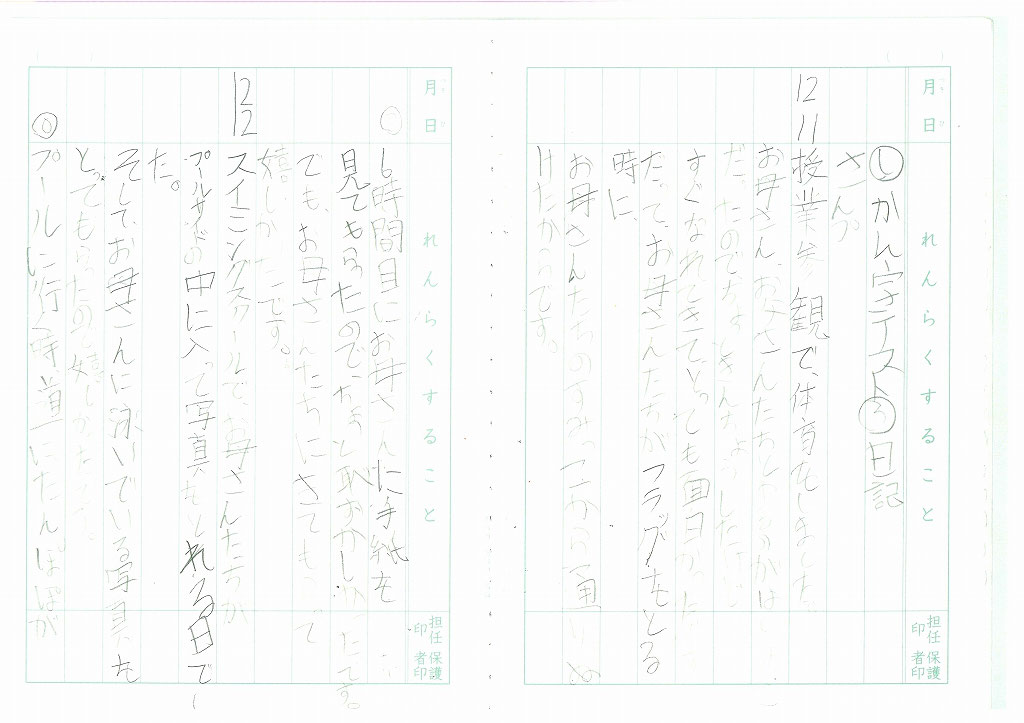 月日
れんらくすること
担任印
保護者印
㋛かん字テスト㋺日記
さんか
12
11
授業参観で、体育をしました。
お母さん、お父さんたち
だったので、ちょ
すぐなれてきて、とっても面白かった
だって、お母さんたちがフラフープをとる
時に、
お母さんたちのすみっこから通り
けたからです。
月日
れんらくすること
担任印
保護者印
6時間目にお母さんに手紙を
見てもらったので、ちょっと恥ずかしかったです。
でも、お母さんたちに
嬉しかったです。
12
12
スイミングスクールで、お母さんたちが
プールサイドの中に入って写真をとれる日でし
た。
そして、お母さんに泳いでいる写真を
とってもらったので嬉しかったです。
プールに行く時、道にたんぽぽが